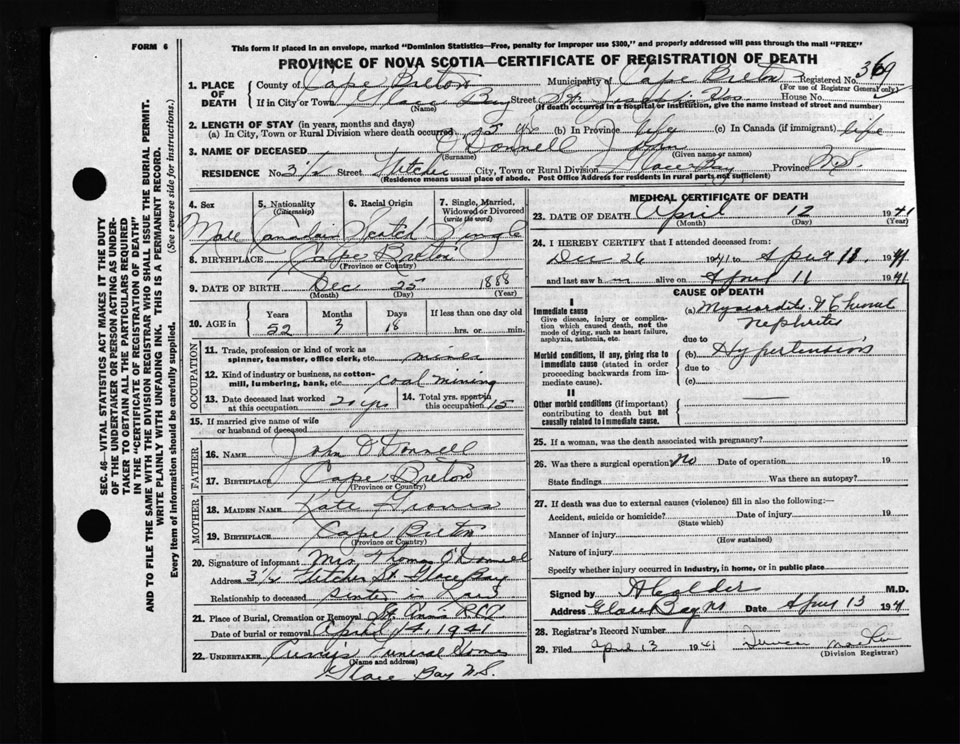 FORM 6
This form if placed in an envelope, marked "Dominion Statistics—Free, penalty for improper use $300," and properly addressed will pass through the mail "FREE"
PROVINCE OF NOVA SCOTIA—CERTIFICATE OF REGISTRATION OF DEATH
SEC. 46—VITAL STATISTICS ACT MAKES IT THE DUTY
OF THE UNDERTAKER OR PERSON ACTING AS UNDER-
TAKER TO OBTAIN ALL THE PARTICULARS REQUIRED
IN THE "CERTIFICATE OF REGISTRATION OF DEATH"
AND TO FILE THE SAME WITH THE DIVISION REGISTRAR WHO SHALL ISSUE THE BURIAL PERMIT.
WRITE PLAINLY WITH UNFADING INK. THIS IS A PERMANENT RECORD.
Every item of Information should be carefully supplied. (See reverse side for instructions.)
1. PLACE OF DEATH County of Cape Breton Municipality of Cape Breton Registered No. 369
(For use of Registrar General only)
If in City or Town Glace Bay Street St. Joseph's Hos House No.
(Name) (If death occurred in a hospital or institution, give the name instead of street and number)
2. LENGTH OF STAY (in years, months and days)
(a) In City, Town or Rural Division where death occurred 25 yrs (b) In Province life (c) In Canada (if immigrant) life
3. NAME OF DECEASED O'Donnell John
(Surname) (Given name or names)
RESIDENCE No. 31½ Street Fletcher City, Town or Rural Division Glace Bay Province N.S.
(Residence means usual place of abode. Post Office Address for residents in rural parts not sufficient)
4. Sex 5. Nationality (Citizenship) 6. Racial Origin 7. Single, Married, Widowed or Divorced (write the word)
Male Canadian Scotch Single
8. BIRTHPLACE Cape Breton
(Province or Country)
9. DATE OF BIRTH Dec 25 1888
(Month) (Day) (Year)
10. AGE in Years Months Days If less than one day old
52 3 18 hrs. or min.
OCCUPATION
11. Trade, profession or kind of work as spinner, teamster, office clerk, etc. miner
12. Kind of industry or business, as cotton-mill, lumbering, bank, etc. coal mining
13. Date deceased last worked at this occupation 20 yrs 14. Total yrs. spent in this occupation 15
15. If married give name of wife or husband of deceased
FATHER
16. NAME John O'Donnell
17. BIRTHPLACE Cape Breton
(Province or Country)
MOTHER
18. MAIDEN NAME Kate
19. BIRTHPLACE Cape Breton
(Province or Country)
20. Signature of informant Mrs Thomas O'Donnell
Address 31½ Fletcher St Glace Bay
Relationship to deceased Sister in Law
21. Place of Burial, Cremation or Removal St. Ann's R.C.
Date of burial or removal April 14, 1941
22. UNDERTAKER Funeral Home
(Name and address)
Glace Bay N.S.
MEDICAL CERTIFICATE OF DEATH
23. DATE OF DEATH April 12 1941
(Month) (Day) (Year)
24. I HEREBY CERTIFY that I attended deceased from:
Dec 26 1941 to April 11, 1941
and last saw h alive on April 11 1941
CAUSE OF DEATH
I
Immediate cause
Give disease, injury or complication which caused death, not the mode of dying, such as heart failure, asphyxia, asthenia, etc.
(a) Myocarditis & Chronic
Nephritis
due to
Morbid conditions, if any, giving rise to immediate cause (stated in order proceeding backwards from immediate cause).
(b) Hypertension
due to
(c)
II
Other morbid conditions (if important) contributing to death but not causally related to immediate cause.
25. If a woman, was the death associated with pregnancy?
26. Was there a surgical operation No Date of operation 19
State findings Was there an autopsy?
27. If death was due to external causes (violence) fill in also the following:—
Accident, suicide or homicide? Date of injury 19
(State which)
Manner of injury
(How sustained)
Nature of injury
Specify whether injury occurred in industry, in home, or in public place
Signed by M.D.
Address Glace Bay NS Date April 13 1941
28. Registrar's Record Number
29. Filed April 13 1941
(Division Registrar)